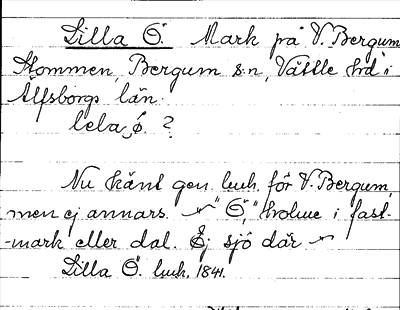 Lilla Ö. Mark på V. Bergum
Stommen, Bergum s:n, Vättle hd i
Älfsborgs län.
lela ö. ?
Nu känt gen. luh. för V. Bergum,
men ej annars. "Ö", holme i fast-
-mark eller dal. Ej sjö där
Lilla Ö. luh. 1841.